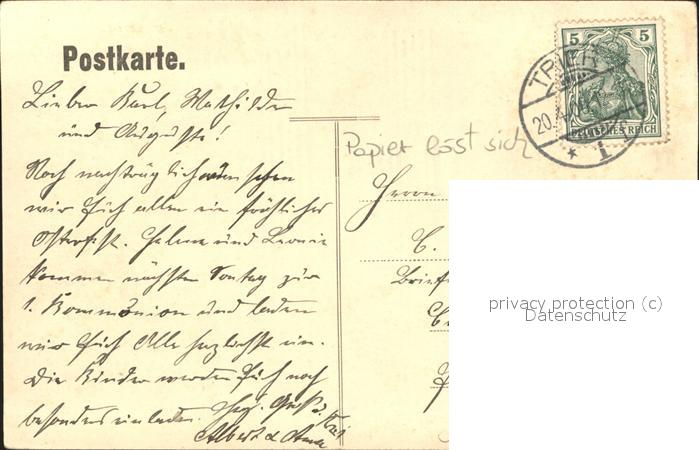 Postkarte.
5 5
DEUTSCHES REICH
TRIER
20.4.
* 1
Lieben Karl, Mathilden
und Auguste!
Papier löst sich
Noch nachträglich wünschen
wir Euch allen ein fröhliches
Osterfest. Helene und Leonie
kommen nächsten Sontag zur
1. Kommunion und laden
wir Euch Alle herzlichst ein.
Die Kinder werden Euch noch
besonders einladen. Herzl. Grüße
Albert & Anna
Herrn
C.
privacy protection (c)
Datenschutz